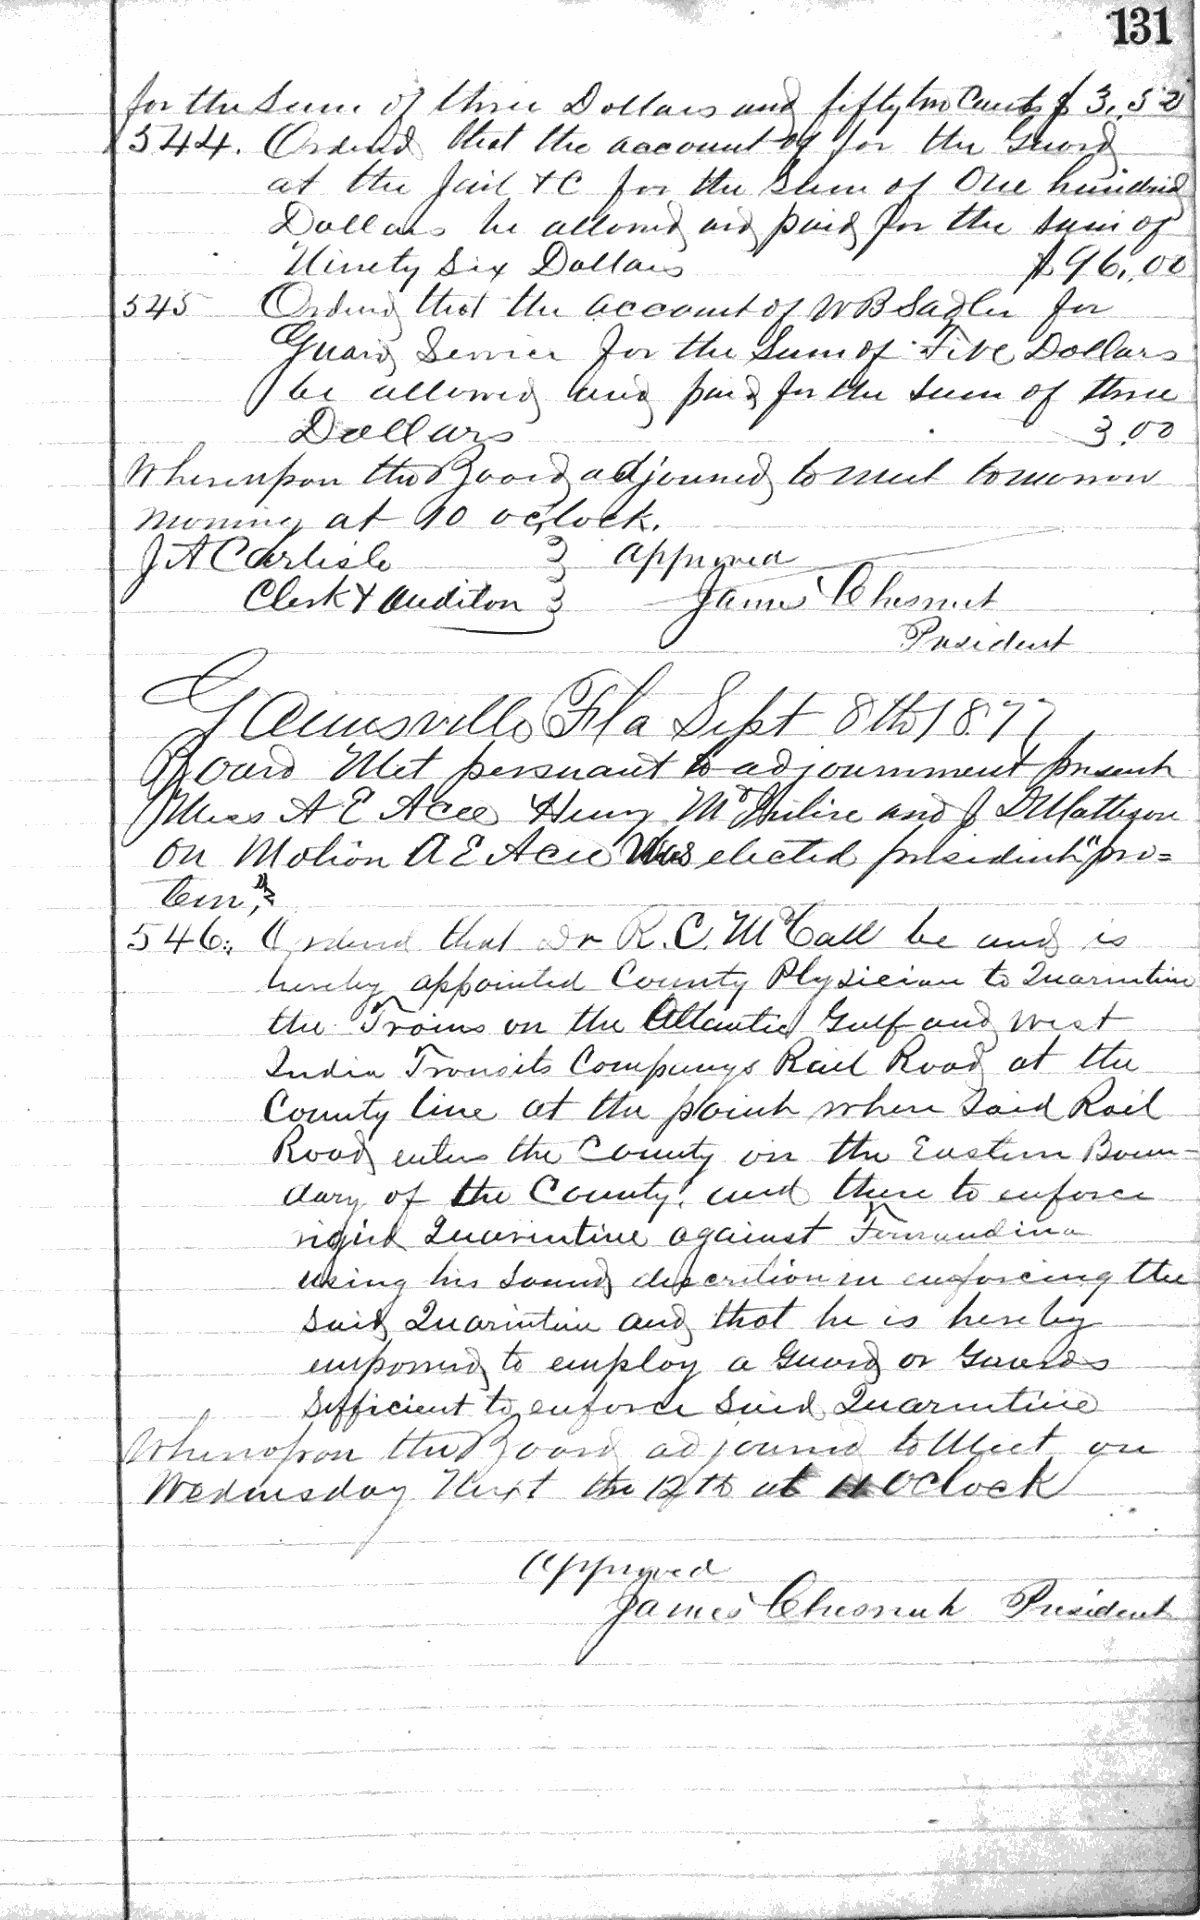 131
for the Sum of three Dollars and fifty two Cents $ 3.52
544. Ordered that the account of for the Guard
at the Jail &C for the Sum of One hundred
Dollars be allowed and paid for the sum of
Ninety Six Dollars $96.00
545 Ordered that the account of W B Sadler for
Guard Service for the Sum of Five Dollars
be allowed and paid for the sum of three
Dollars 3.00
Whereupon the Board adjourned to meet tomorrow
morning at 10 oclock.
J A Carlisle } approved
Clerk & Auditor } James Chesnut
President
Gainesville Fla Sept 8th 1877
Board Met persuant to adjournment present
Mess A E Acee Henry and J D Matteson
On Motion A E Acee Was elected president "pro=
tem,"
546. Ordered that Dr R. C. McCall be and is
hereby appointed County Plysician to Quarintine
the Trains on the Atlantic Gulf and West
India Transits Companys Rail Road at the
County line at the point where Said Rail
Road enters the County on the Eastern Boun-
dary of the County. and there to enforce
rigid Quarintine against Fernandina
using his Sound discretion in enforcing the
Said Quarintine and that he is hereby
empowered to employ a Guard or Guards
Sifficient to enforce Said Quarintine
Whereupon the Board adjourned to Meet on
Wednesday Next the 12th at 11 OClock
approved
James Chesnut President